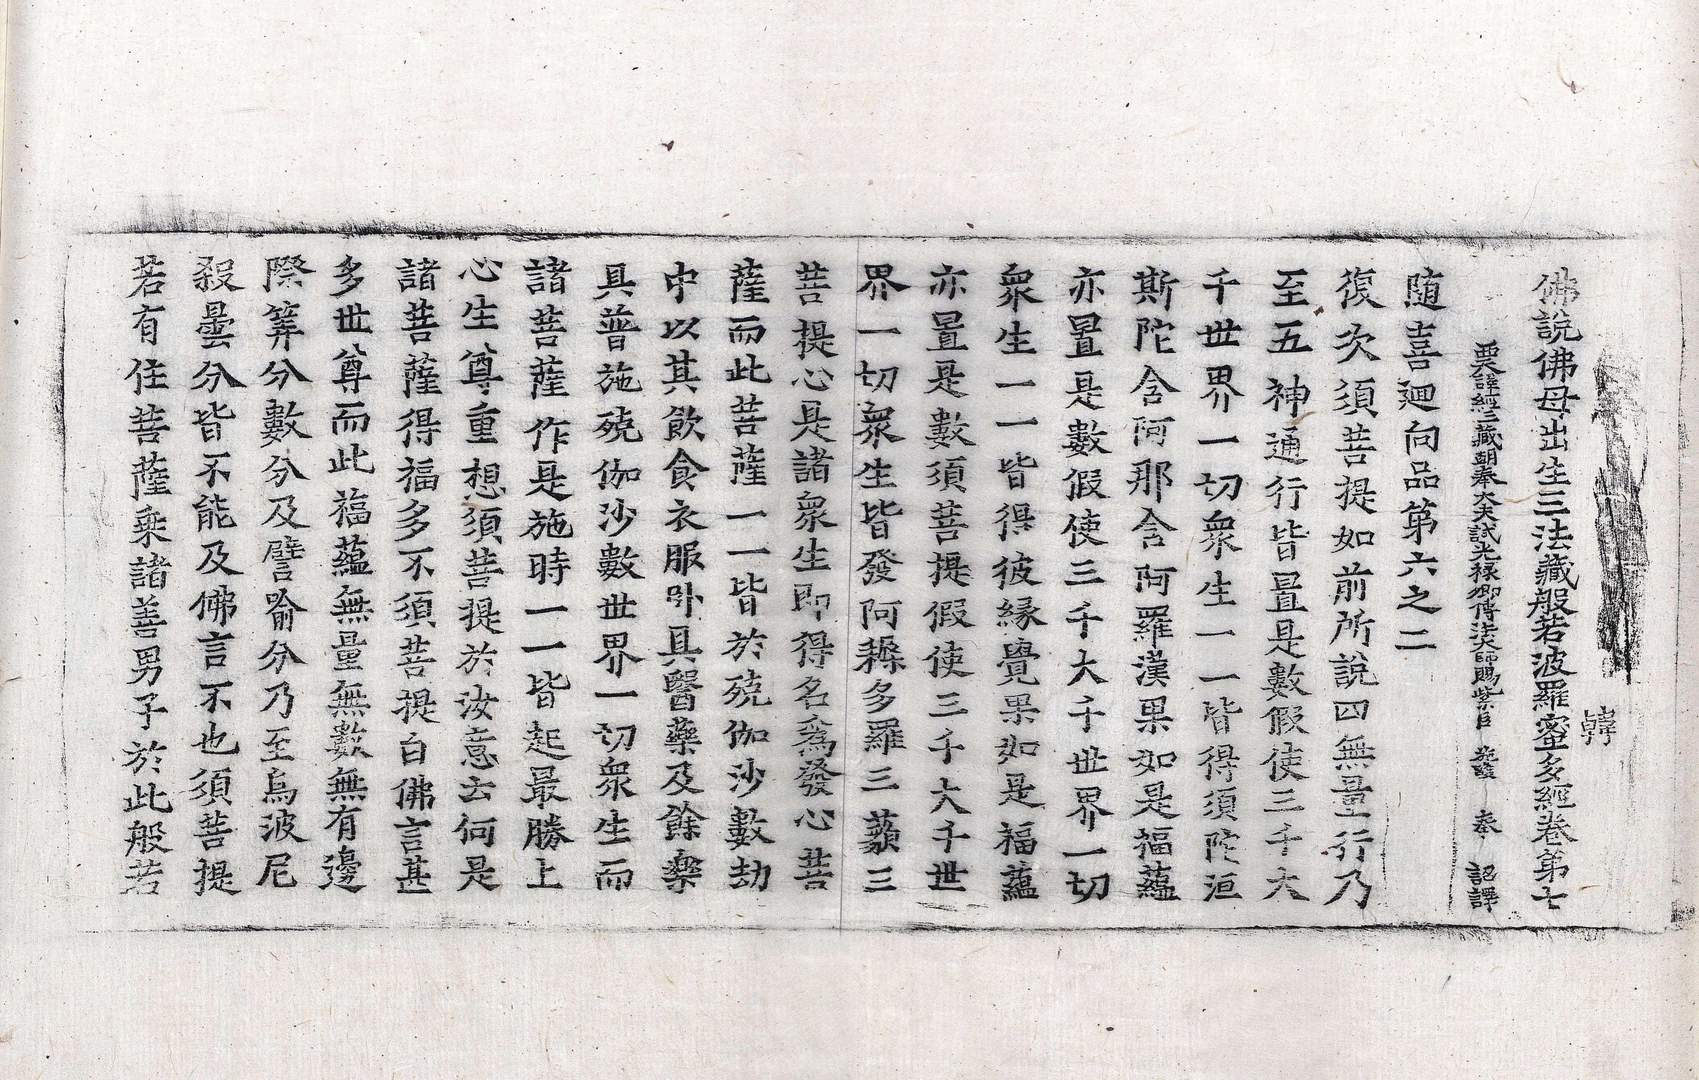 佛說佛母出生三法藏般若波羅蜜多經卷第七
韓
西天譯經三藏朝奉大夫試光祿卿傳法大師賜紫臣 施護 奉 詔譯
随喜迴向品第六之二
復次須菩提如前所說四無量行乃
至五神通行皆置是數假使三千大
千世界一切衆生一一皆得須陀洹
斯陀含阿那含阿羅漢果如是福蘊
亦置是數假使三千大千世界一切
衆生一一皆得彼緣覺果如是福蘊
亦置是數須菩提假使三千大千世
界一切衆生皆發阿耨多羅三藐三
菩提心是諸衆生即得名爲發心菩
薩而此菩薩一一皆於殑伽沙數劫
中以其飲食衣服卧具醫藥及餘樂
具普施殑伽沙數世界一切衆生而
諸菩薩作是施時一一皆起最勝上
心生尊重想須菩提於汝意云何是
諸菩薩得福多不須菩提白佛言甚
多世尊而此福蘊無量無數無有邊
際筭分數分及譬喻分乃至烏波尼
殺曇分皆不能及佛言不也須菩提
若有住菩薩乘諸善男子於此般若